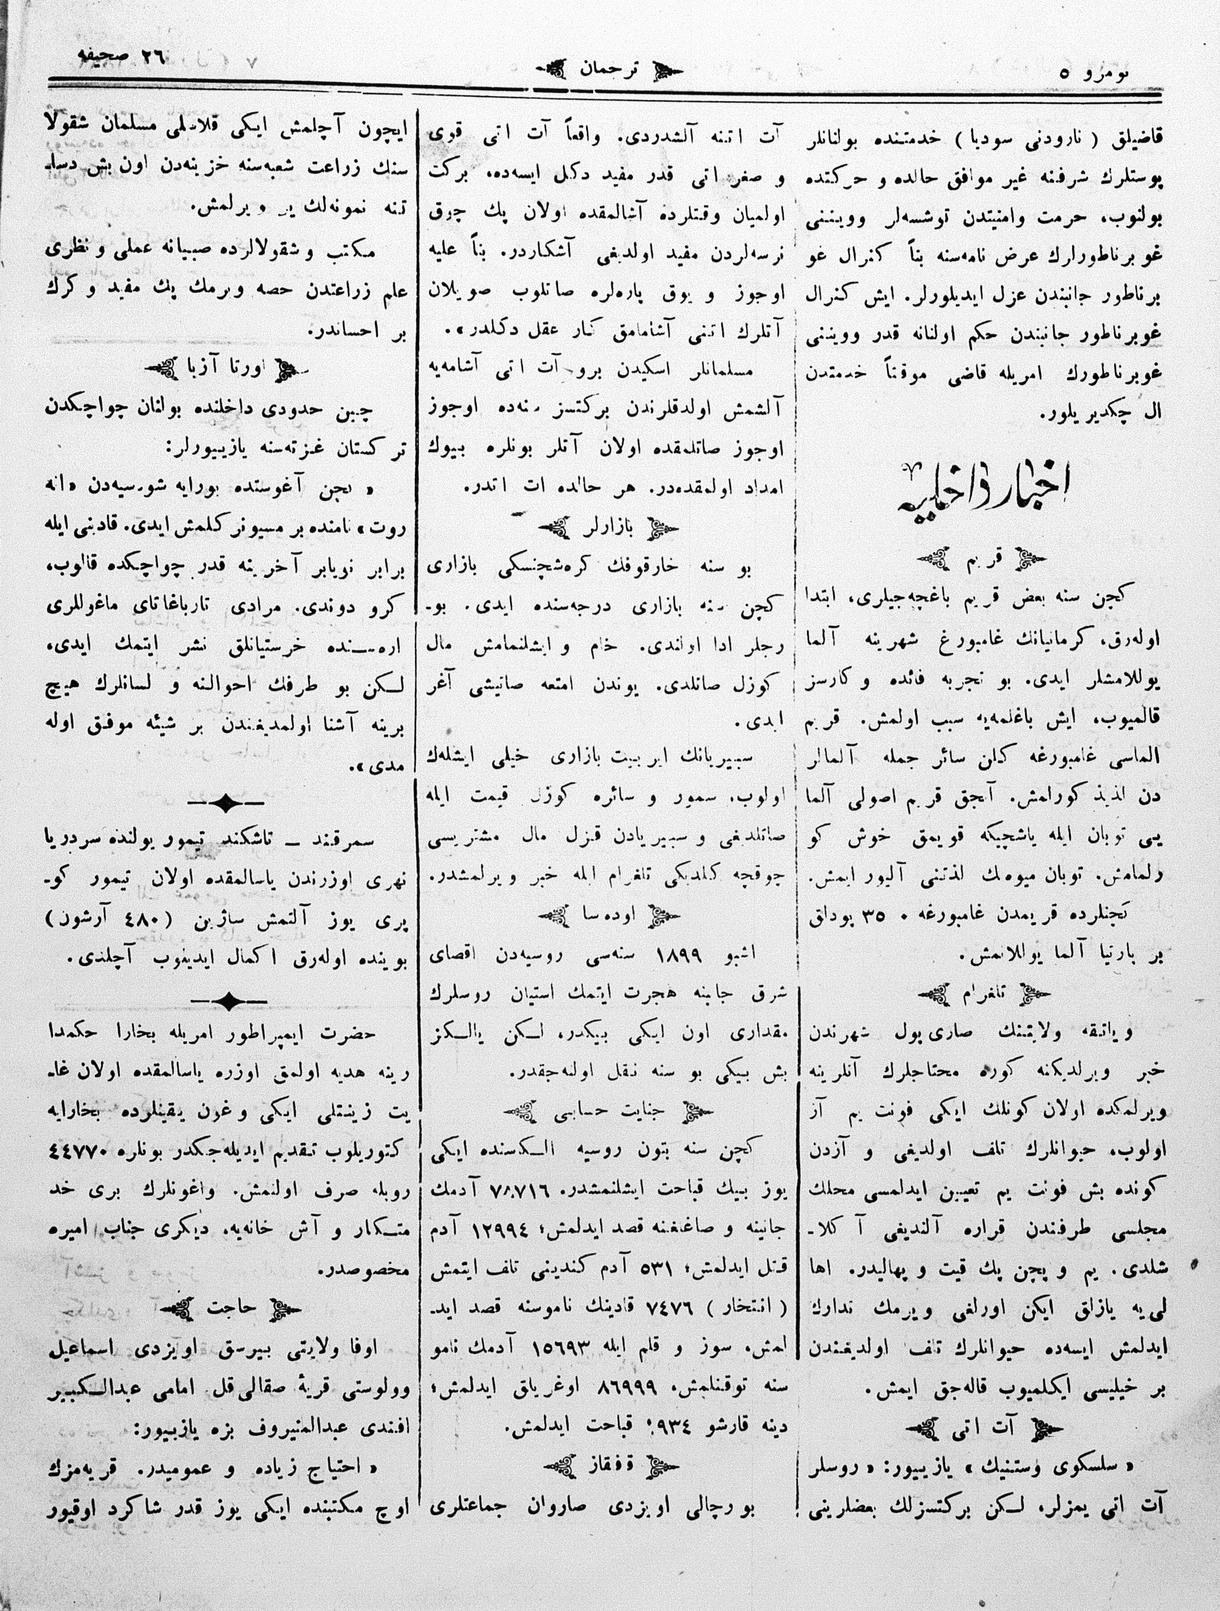 نومرو ٥
ترجمان
٢٦ صحیفه
قاضیلق ( نارودنی سودیا ) خدمتنده بولنانلر
پوستلرك شرفنه غیر موافق حالده و حركتده
بولنوب، حرمت وامنیتدن توشسه‌لر وویننی
غوبرناطورلرك عرض نامه‌سنه بنأ كنرال غو
برناطور جانبندن عزل ایدیلورلر. ایش كنرال
غوبرناطور جانبندن حكم اولنانه قدر وویننی
غوبرناطورك امریله قاضی موقتاً خدمتدن
ال چكدیریلور.
اخبار داخلیه
قریم
كچن سنه بعض قریم باغچه‌جیلری، ابتدا
اوله‌رق، كرمانیانك غامبورغ شهرینه آلما
یوللامشلر ایدی. بو تجربه فائده و كارسز
قالمیوب، ایش باغلمه‌یه سبب اولمش. قریم
الماسی غامبورغه كلن سائر جمله آلمالر
دن لذیذ كورلمش. آنجق قریم اصولی آلما
یی توبان ایله یاشچیكه قویمق خوش كو
رلمامش. توبان میوه‌نك لذتنی آلیور ایمش.
كچنلرده قریمدن غامبورغه ٣٥٠ پوداق
بر پارتیا آلما یوللانمش.
تلغرام
ویاتقه ولایتنك صاری‌پول شهرندن
خبر ویرلدیكنه كوره محتاجلرك آتلرینه
ویرلمكده اولان كونلك ایكی فونت یم آز
اولوب، حیوانلرك تلف اولدیغی و آزدن
كونده بش فونت یم تعیین ایدلمسی محلك
مجلسی طرفندن قراره آلندیغی آكلا۔
شلدی. یم و پچن پك قیت و پهالیدر. اها
لی‌یه یازلق ایكن اورلغی ویرمك تدارك
ایدلمش ایسه‌ده حیوانلرك تلف اولدیغندن
بر خیلیسی ایكلمیوب قاله‌جق ایمش.
آت اتی
« سلسكوی وستنیك » یازییور: « روسلر
آت اتی یمزلر، لـكن بركتسزلك بعضلرینی
آت اتینه آلشدردی. واقعاً آت اتی قوی
و صغر اتی قدر مفید دكل ایسه‌ده، بركت
اولمیان وقتلرده آشالمقده اولان پك چوق
نرسه‌لردن مفید اولدیغی آشكاردر. بنأ علیه
اوجوز و یوق پاره‌لره صاتلوب صویلان
آتلرك اتنی آشامامق كار عقل دكلدر».
مسلمانلر اسكیدن برو آت اتی آشامه‌یه
آلشمش اولدقلرندن بركتسز سنه‌ده اوجوز
اوجوز صاتلمقده اولان آتلر بونلره بیوك
امداد اولمقده‌در. هر حالده ات اتدر.
بازارلر
بو سنه خارقوفك كره‌شچنسكی بازاری
كچن سنه بازاری درجه‌سنده ایدی. بو۔
رجلر ادا اولندی. خام و ایشلنمامش مال
كوزل صاتلدی. یوندن امتعه صاتیشی آغر
ایدی.
سیبیریانك ایربیت بازاری خیلی ایشله‌ك
اولوب، سمور و سائره كوزل قیمت ایله
صاتلدیغی و سیبیریادن قزل مال مشتریسی
چوقچه كلدیكی تلغرام ایله خبر ویرلمشدر.
اوده‌سا
اشبو ١٨٩٩ سنه‌سی روسیه‌دن اقصای
شرق جانبنه هجرت ایتمك استیان روسلرك
مقداری اون ایكی بیكدر، لـكن یالـكز
بش بیكی بو سنه نقل اولنه‌جقدر.
جنایت حسابی
كچن سنه بتون روسیه الـكسنده ایكی
یوز بیك قباحت ایشلنمشدر. ٧٨٧١٦ آدمك
جانینه و صاغلغنه قصد ایدلمش؛ ١٢٩٩٤ آدم
قتل ایدلمش؛ ٥٣١ آدم كندینی تلف ایتمش
( انتحار ) ٧٤٧٦ قادینك ناموسنه قصد اید۔
لمش، سوز و قلم ایله ١٥٦٩٣ آدمك نامو
سنه توقنلمش، ٨٦٩٩٩ اوغریلق ایدلمش؛
دینه قارشو قباحت ایدلمش.
قفقاز
بورچالی اویزدی صاروان جماعتلری
ایچون آچلمش ایكی قلاسلی مسلمان شقولا
سنك زراعت شعبه‌سنه خزینه‌دن اون بش دسا۔
تنه نمونه‌لك یر ویرلمش.
مكتب و شقولالرده صبیانه عملی و نظری
علم زراعتدن حصه ویرمك پك مفید و كرك
بر احساندر.
اورتا آزیا
چین حدودی داخلنده بولنان چواچكدن
تركستان غزته‌سنه یازییورلر:
« كچن آغوستده بورایه شورسیه‌دن «انه
روت» نامنده بر مسیونر كلمش ایدی. قادینی ایله
برابر نویابر آخرینه قدر چواچكده قالوب،
كرو دوندی. مرادی تارباغاتای ماغوللری
اره‌سـنده خرستیانلق نشر ایتمك ایدی،
لـكن بو طرفك احوالنه و لسانلرك هیچ
برینه آشنا اولمدیغندن بر شیئه موفق اوله
مدی».
سمرقند ــ تاشكند تیمور یولنده سردریا
نهری اوزرندن یاسالمقده اولان تیمور كو۔
پری یوز آلتمش ساژین (٤٨٠ آرشون)
بوینده اوله‌رق اكمال ایدینوب آچلدی.
حضرت ایمپراطور امریله بخارا حكمدا
رینه هدیه اولمق اوزره یاسالمقده اولان غا۔
یت زینتلی ایكی وغون یقینلرده بخارایه
كتوریلوب تقدیم ایدیله‌جكدر بونلره ٤٤٧٧٠
روبله صرف اولنمش. واغونلرك بری خد
متـكار و آش خانه‌یه، دیكری جناب امیره
مخصوصدر.
حاجت
اوفا ولایتی بیرسق اویزدی اسماعیل
وولوستی قریهٔ صقالی‌قل امامی عبدالـكبیر
افندی عبدالمنیروف بزه یازییور:
« احتیاج زیاده و عمومیدر. قریه‌مزك
اوچ مكتبنده ایكی یوز قدر شاكرد اوقیور